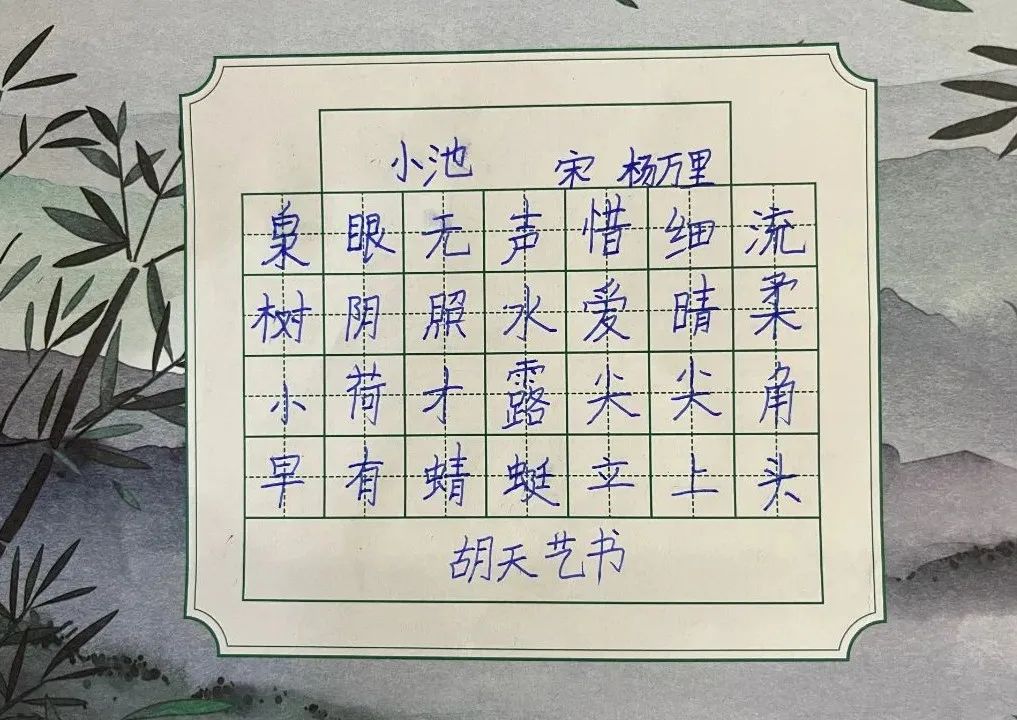 小池 宋 杨万里
泉眼无声惜细流
树阴照水爱晴柔
小荷才露尖尖角
早有蜻蜓立上头
胡天艺书